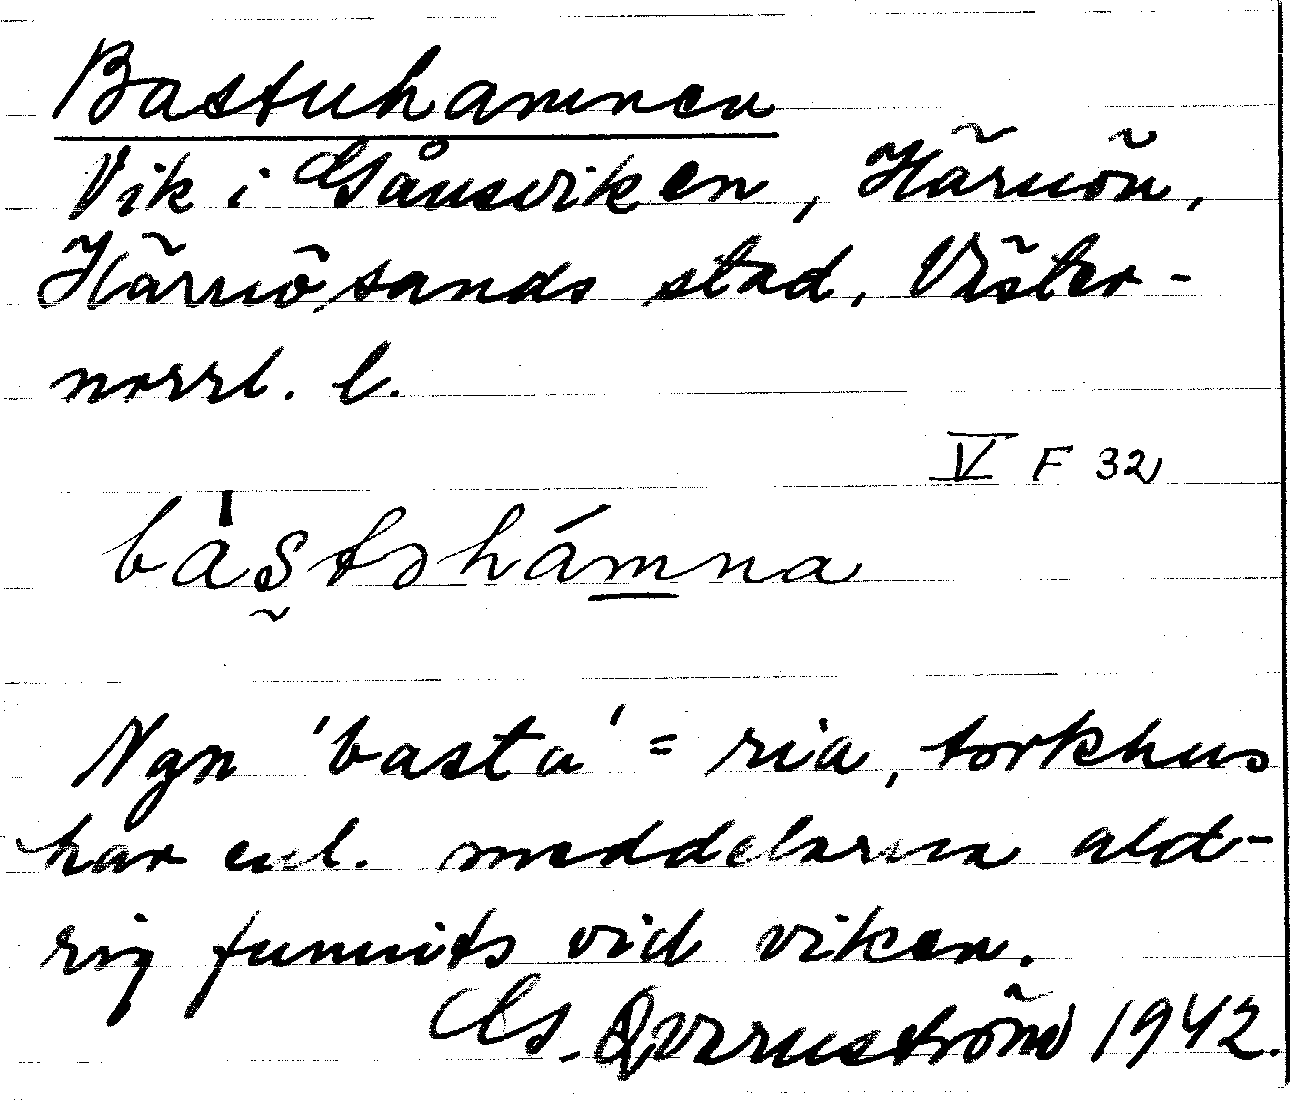 Bastuhamnen
Vik i Gånsviken, Härnön,
Härnösands stad, Väster-
norrl. l.
V F 32
bastshámna
Ngn 'basta' = ria, torkhus
har enl. meddelarna ald-
rig funnits vid viken.
Qvarnström 1942.